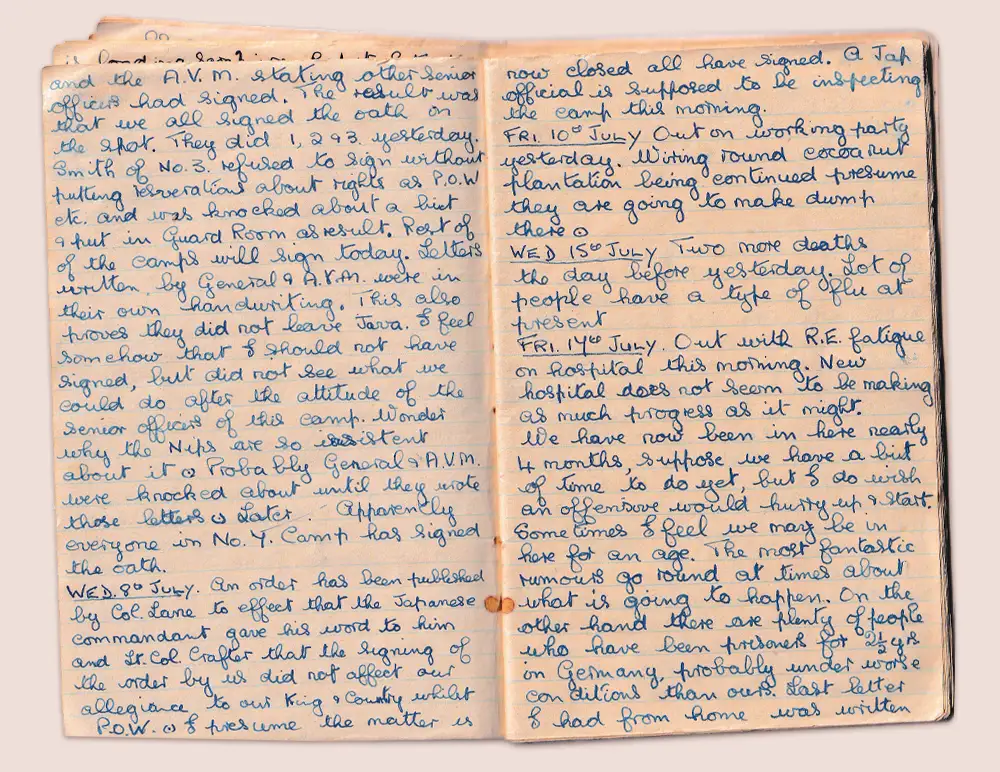 and the A.V.M. stating other senior
officers had signed. The result was
that we all signed the oath on
the spot. They did 1,293 yesterday.
Smith of No.3. refused to sign without
putting reserverations about rights as P.O.W
etc. and was knocked about a bit
& put in Guard Room as result. Rest of
of the camps will sign today. Letters
written by General & A.V.M. were in
their own handwriting. This also
proves they did not leave Java. I feel
somehow that I should not have
signed, but did not see what we
could do after the attitude of the
senior officers of this camp. Wonder
why the Nips are so insistent
about it. Probably General & A.V.M.
were knocked about until they wrote
those letters. Later. Apparently
everyone in No.4. Camp has signed
the oath.
WED. 8th JULY. An order has been published
by Col. Lane to effect that the Japanese
commandant gave his word to him
and Lt. Col. Crafter that the signing of
the order by us did not affect our
allegiance to our King & Country whilst
P.O.W. I presume the matter is
now closed all have signed. A Jap
official is supposed to be inspecting
the camp this morning.
FRI. 10th JULY Out on working party
yesterday. Wiring round cocoanut
plantation being continued presume
they are going to make dump
there.
WED 15th JULY Two more deaths
the day before yesterday. Lot of
people have a type of flu at
present
FRI. 17th JULY. Out with R.E. fatigue
on hospital this morning. New
hospital does not seem to be making
as much progress as it might.
We have now been in here nearly
4 months, suppose we have a bit
of time to do yet, but I do wish
an offensive would hurry up & start.
Sometimes I feel we may be in
here for an age. The most fantastic
rumours go round at times about
what is going to happen. On the
other hand there are plenty of people
who have been prisoners for 2½ yrs
in Germany, probably under worse
conditions than ours. Last letter
I had from home was written